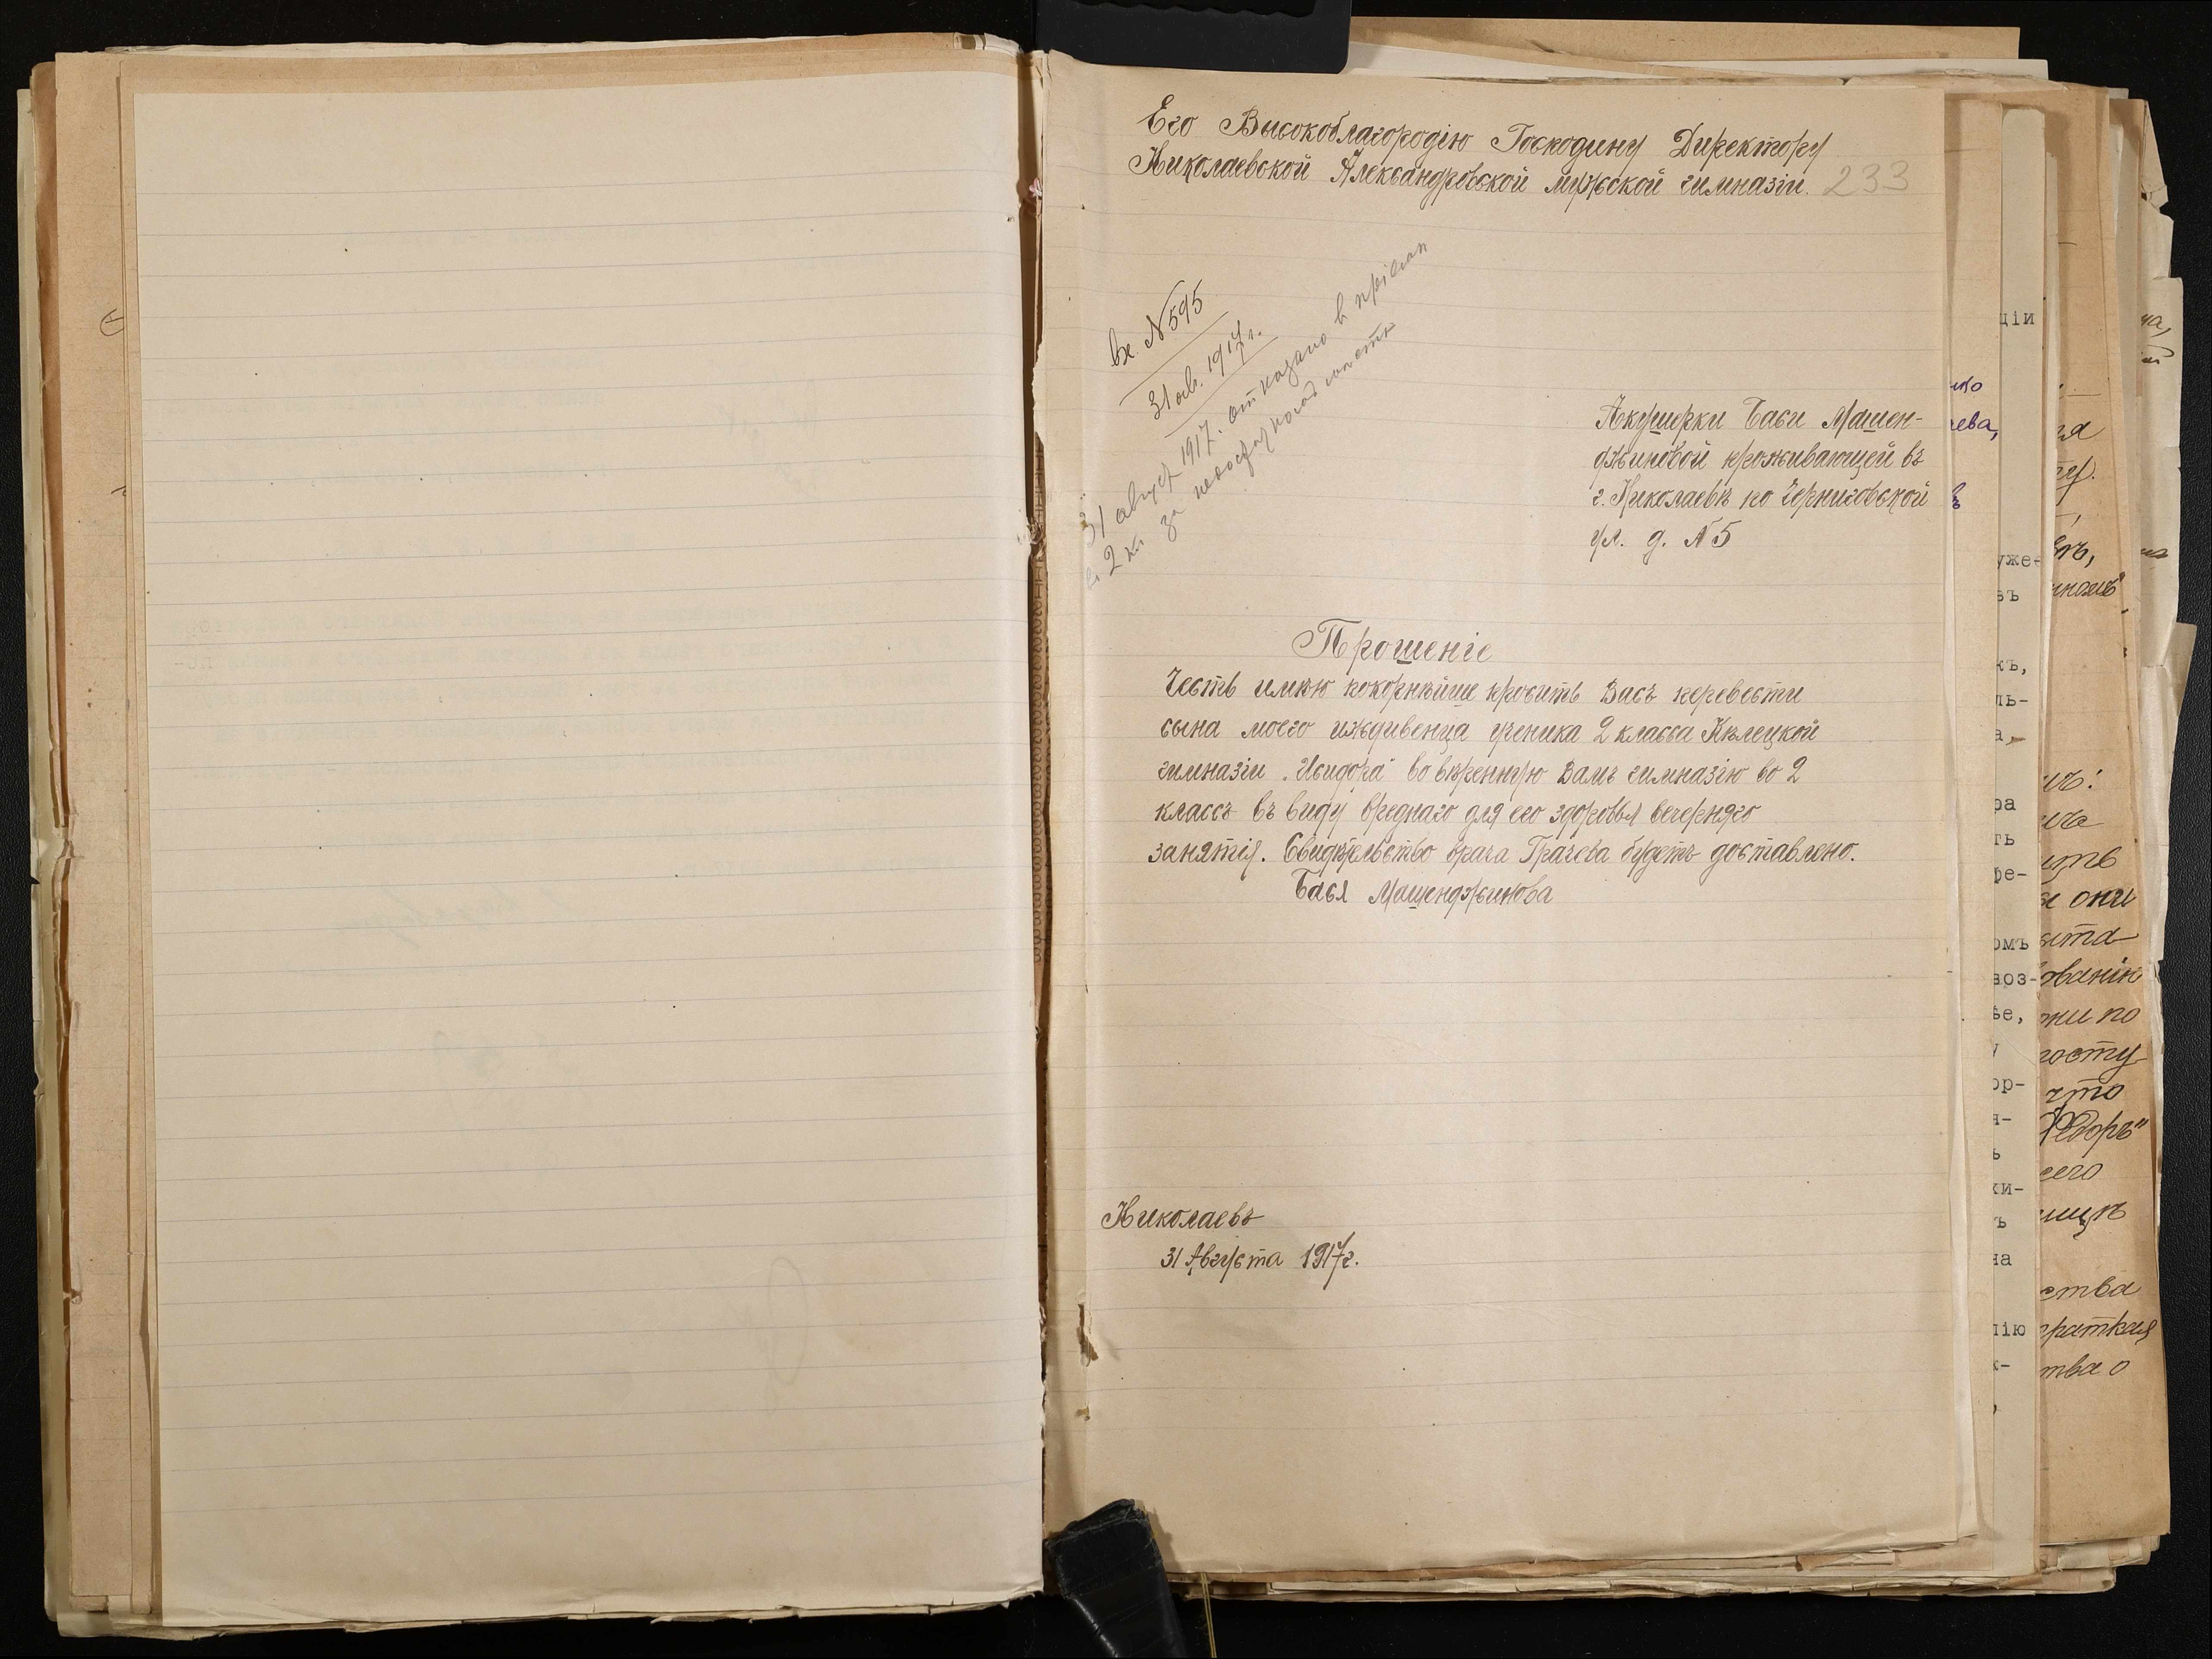 Его Высокоблагородію Господину Директору
Николаевской Александровской мужской гимназіи. 233
Вх. N 595
31 ав. 1917 г.
31 август 1917. отказано в
в 2 кл за
Акушерки Баси Машен-
джиновой проживающей въ
г. Николаевѣ по Черниговской
ул. д. N 5
Прошеніе
Честь имѣю покорнѣйше просить Васъ перевести
сына моего иждивенца ученика 2 класса Кѣлецкой
гимназіи „Исидора" во ввѣренную Вамъ гимназію во 2
классъ въ виду вреднаго для его здоровья вечерняго
занятія. Свидѣтельство врача Грачева будетъ доставлено.
Бася Машенджинова
Николаевъ
31 Августа 1917 г.